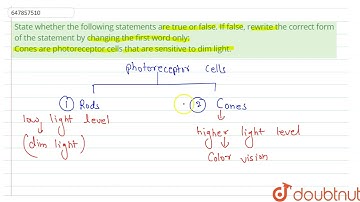 647857510
State whether the following statements are true or false. If false, rewrite the correct form
of the statement by changing the first word only:
Cones are photoreceptor cells that are sensitive to dim light.
photoreceptor cells
1 Rods
2 Cones
low light level
(dim light)
higher light level
Color vision
doubtnut